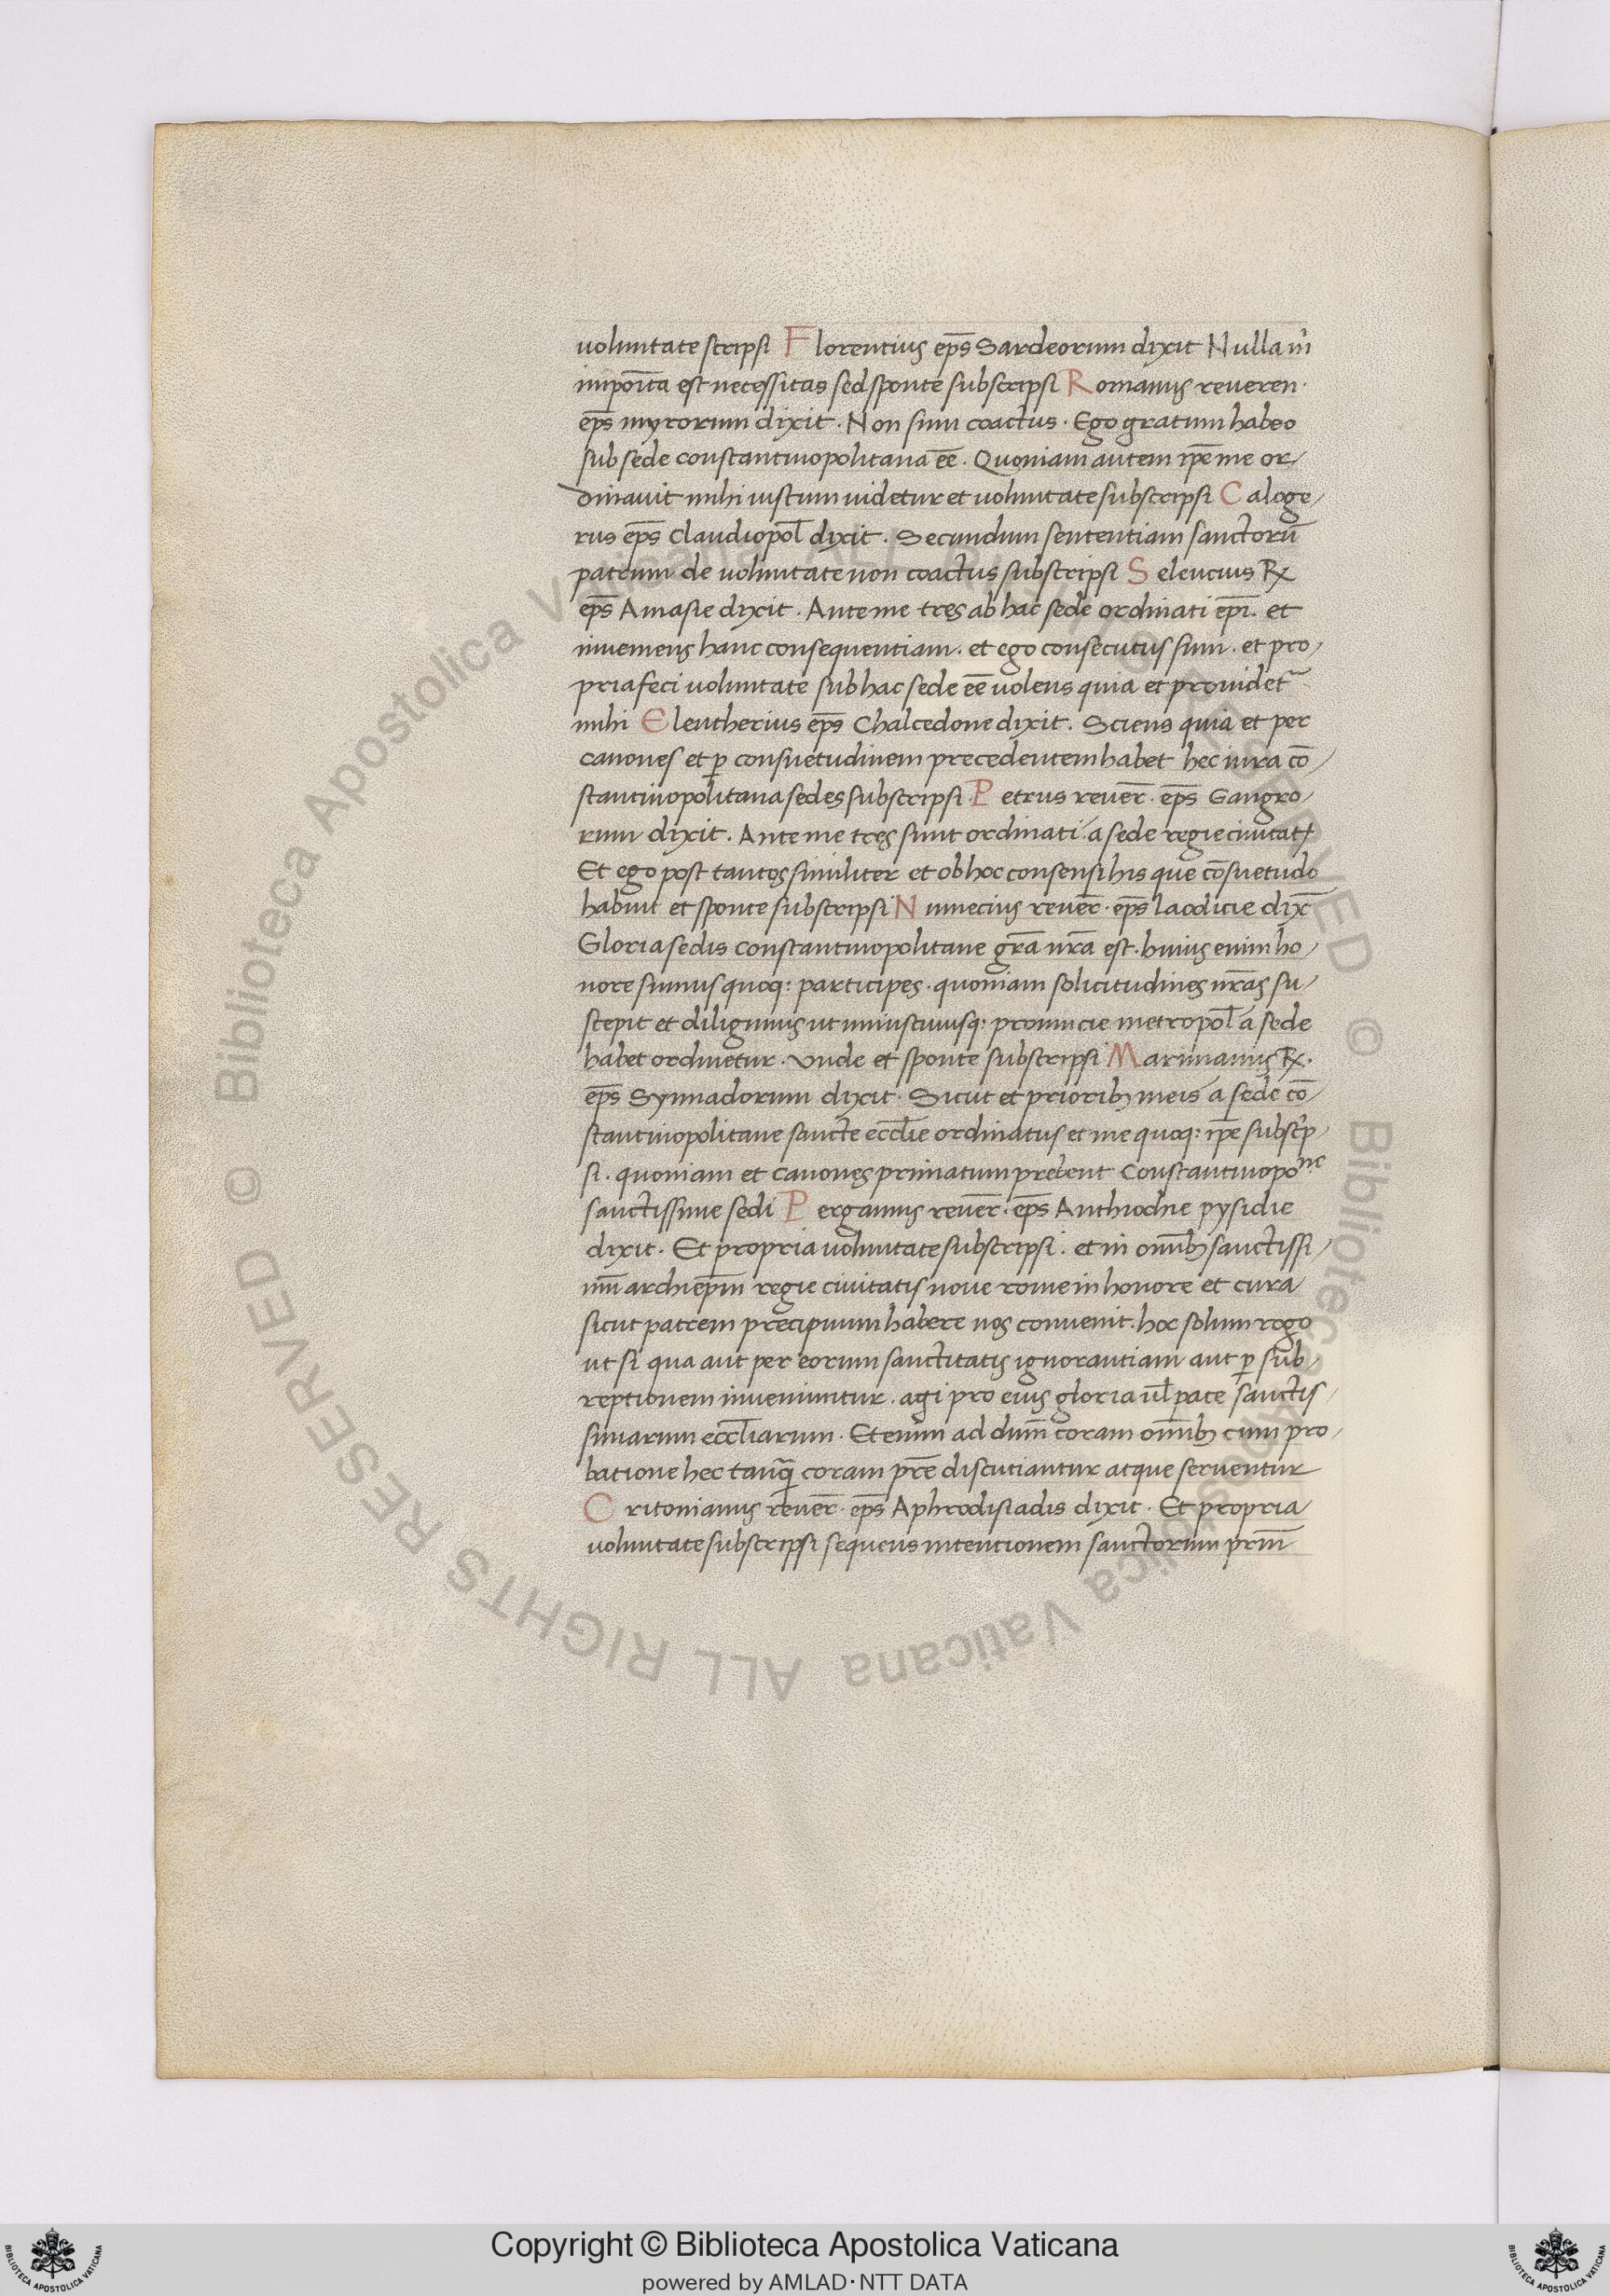 uoluntate scripsi Florentius ep̄s Sardeorum dixit Nulla m̊
imposīta est necessitas sed sponte subscripsi Romanus reueren·
ep̄s myrorum dixit · Non sum coactus · Ego gratum habeo
sub sede constantinopolitana ēē . Quoniam autem ip̄e me or/
dinauit mihi iustum uidetur et uoluntate subscripsi Caloge/
rus ep̄s Claudiopol̄ dixit . Secundum sententiam sanctorū
patrum de uoluntate non coactus subscripsi Seleucius R̨
ep̄s Amasie dixit . Ante me tres ab hac sede ordinati ep̄i . et
inueniens hanc consequentiam . et ego consecutus sum . et pro/
pria feci uoluntate sub hac sede ēē uolens quia et prouidet᷑
mihi Eleutherius ep̄s Chalcedone dixit . Sciens quia et per
canones et ꝑ consuetudinem precedentem habet hec iura cō/
stantinopolitana sedes subscripsi · Petrus reuer̄ · ep̄s Gangro/
rum dixit . Ante me tres sunt ordinati a sede regie ciuitatꝭ
Et ego post tantos similiter et ob hoc consensi his que cōsuetudo
habuit et sponte subscripsi Nunecius reuer̄ · ep̄s laodicie dix̄
Gloria sedis constantinopolitane gr̄a nr̄a est . huius enim ho/
nore sumus quoq: participes . quoniam solicitudines nr̄as su/
scepit et diligimus ut uniuscuiusq: prouincie metropol̄ a sede
habet ordinetur . Vnde et sponte subscripsi Marinianus R̨ ·
ep̄s Synnadorum dixit · Sicut et prioribȝ meis a sede cō/
stantinopolitane sancte eccl̄ie ordinatus et me quoq: ip̄e subscr̊p/
si . quoniam et canones primatum prebent Constantinopoⁿᵉ
sanctissime sedi Pergamus reuer̄ · ep̄s Anthiochie pysidie
dixit · Et propria uoluntate subscripsi . et in om̄ibȝ sanctissi/
mū archiep̄m regie ciuitatis noue rome in honore et cura
sicut patrem precipuum habere nos conuenit . hoc solum rogo
ut si qua aut per eorum sanctitatis ignorantiam aut ꝑ sub/
reptionem inueniuntur . agi pro eius gloria ul̄ pace sanctis/
simarum eccl̄iarum · Etenim ad dum̄ coram om̄ibȝ cum pro/
batione hec tanq̄ coram pr̄e discutiantur atque seruentur
Critonianus reuer̄ · ep̄s Aphrodisiadis dixit · Et propria
uoluntate subscripsi sequens intentionem sanctorum prm̄
© Biblioteca Apostolica Vaticana ALL RIGHTS RESERVED
Copyright © Biblioteca Apostolica Vaticana
powered by AMLAD·NTT DATA
BIBLIOTECA APOSTOLICA VATICANA
BIBLIOTECA APOSTOLICA VATICANA